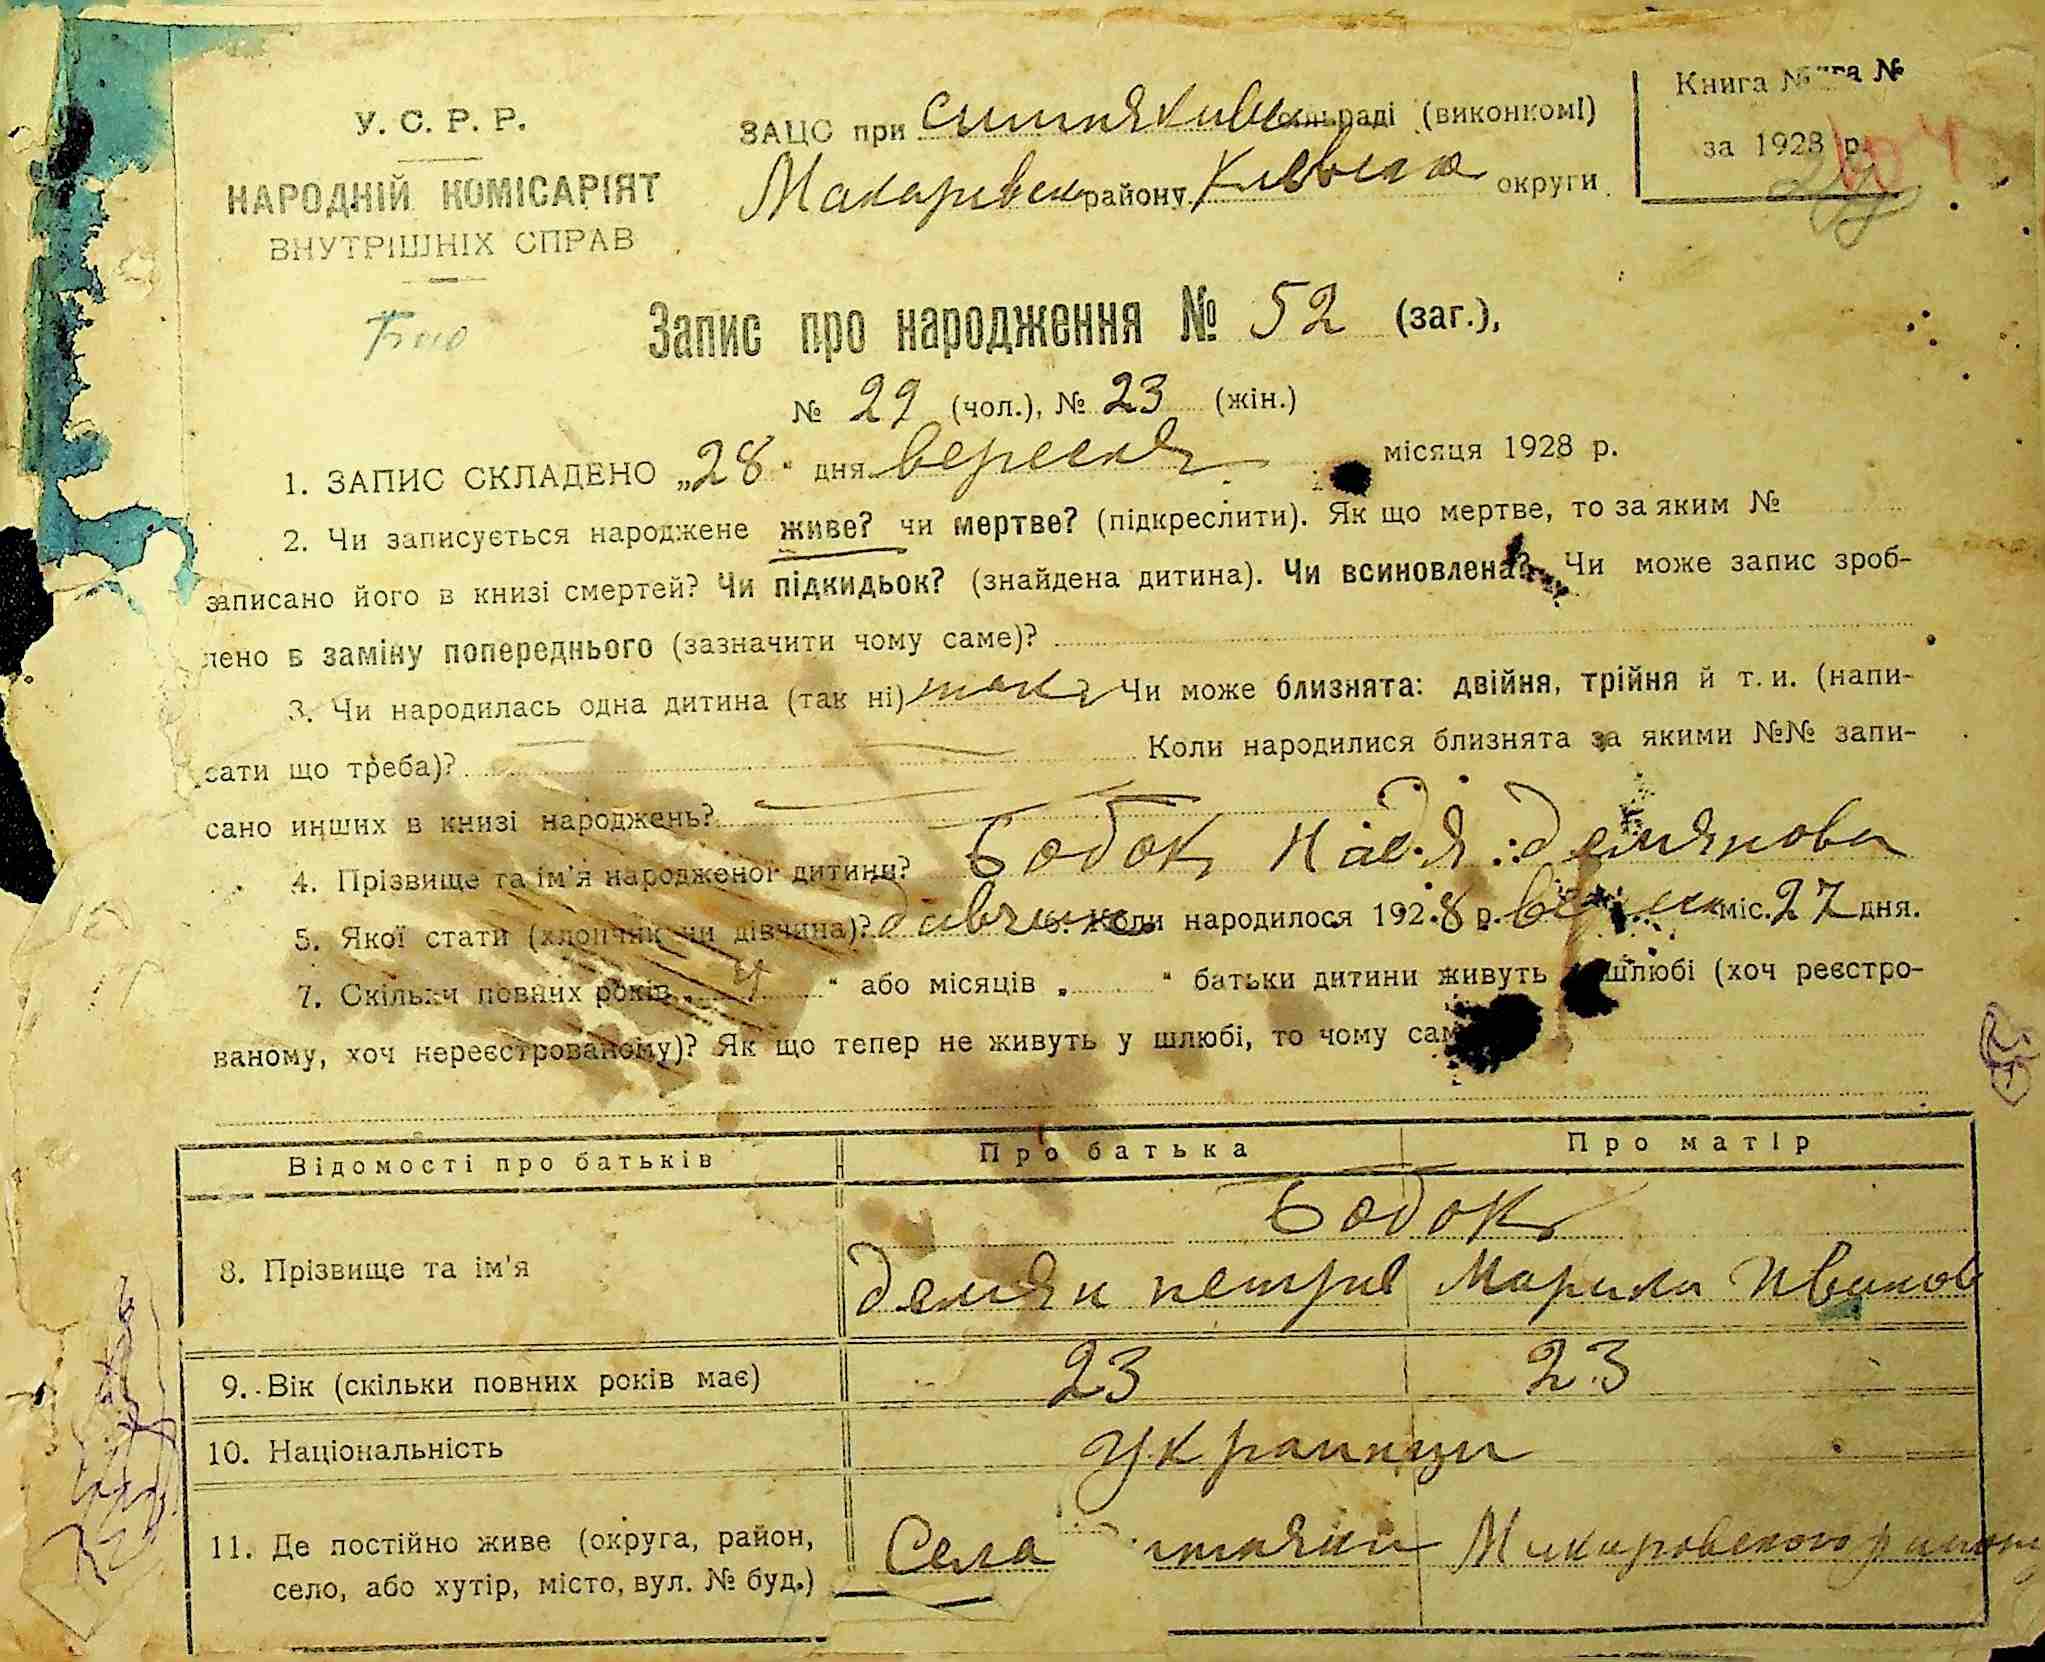 У. С. Р. Р.
НАРОДНІЙ КОМІСАРІЯТ
ВНУТРІШНІХ СПРАВ
ЗАЦС при сільраді (виконкомі)
району округи
Книга №
за 1928 р.
Запис про народження № 52 (заг.),
№ 29 (чол.), № 23 (жін.)
1. ЗАПИС СКЛАДЕНО „28“ дня вересня місяця 1928 р.
2. Чи записується народжене живе? чи мертве? (підкреслити). Як що мертве, то за яким №
записано його в книзі смертей? Чи підкидьок? (знайдена дитина). Чи всиновлена? Чи може запис зроб-
лено в заміну попереднього (зазначити чому саме)?
3. Чи народилась одна дитина (так ні) так Чи може близнята: двійня, трійня й т. и. (напи-
сати що треба)? Коли народилися близнята за якими №№ запи-
сано инших в книзі народжень?
4. Прізвище та ім'я народженої дитини? Бобок Надя Демянова
5. Якої стати (хлопчик чи дівчина)? Коли народилося 1928 р. міс. 27 дня.
7. Скільки повних років „ 4 “ або місяців „ “ батьки дитини живуть шлюбі (хоч реєстро-
ваному, хоч нереєстрованому)? Як що тепер не живуть у шлюбі, то чому сам
Відомості про батьків Про батька Про матір
Бобок
8. Прізвище та ім'я Демян
9. Вік (скільки повних років має) 23 23
10. Національність Українци
11. Де постійно живе (округа, район, Села
село, або хутір, місто, вул. № буд.)